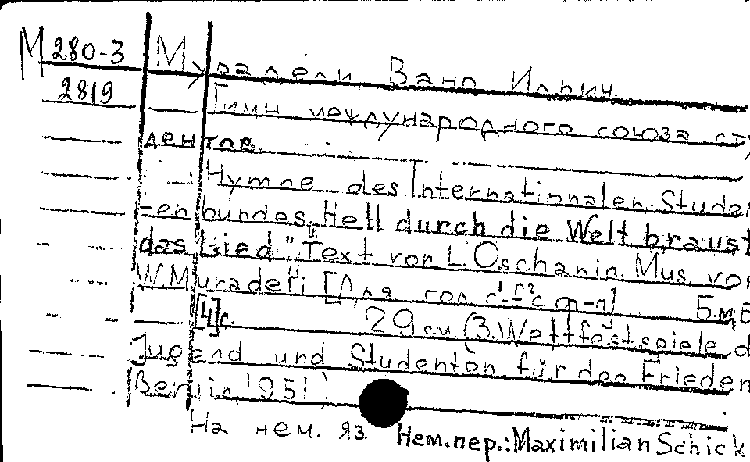 М 280-3 Мурадели, Вано Ильич.
2819 Гимн международного союза сту
дентов.
Hymne des Internationalen Studen
-enbundes "Hell durch die Welt braust
das Lied". Text von L. Oschanin. Mus. von
W. Muradeli [Для гол. с ф-п]
[4] с. 29 см (3. Weltfestspiele d
Jugend und Studenten für den Frieden
Berlin 1951)
На нем. яз. Нем. пер.: Maximilian Schick